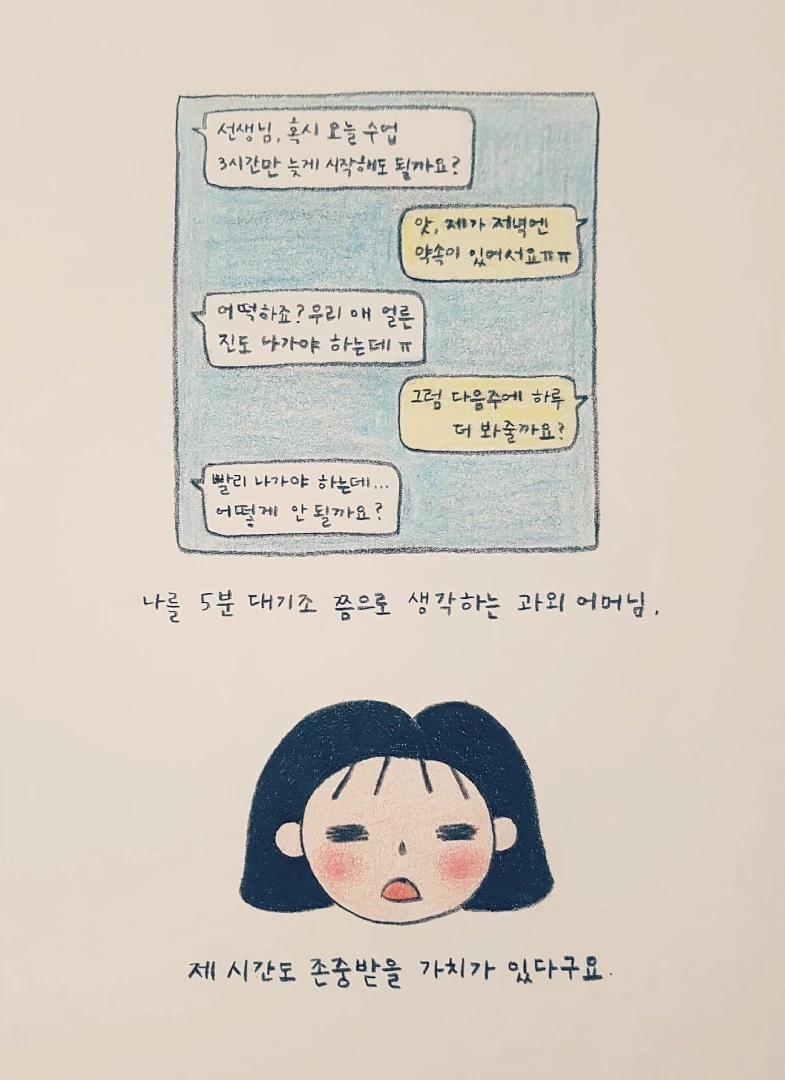 선생님, 혹시 오늘 수업
3시간만 늦게 시작해도 될까요?
앗, 제가 저녁엔
약속이 있어서요ㅠㅠ
어떡하죠? 우리 애 얼른
진도 나가야 하는데 ㅠ
그럼 다음주에 하루
더 봐줄까요?
빨리 나가야 하는데...
어떻게 안 될까요?
나를 5분 대기조 쯤으로 생각하는 과외 어머님.
제 시간도 존중받을 가치가 있다구요.